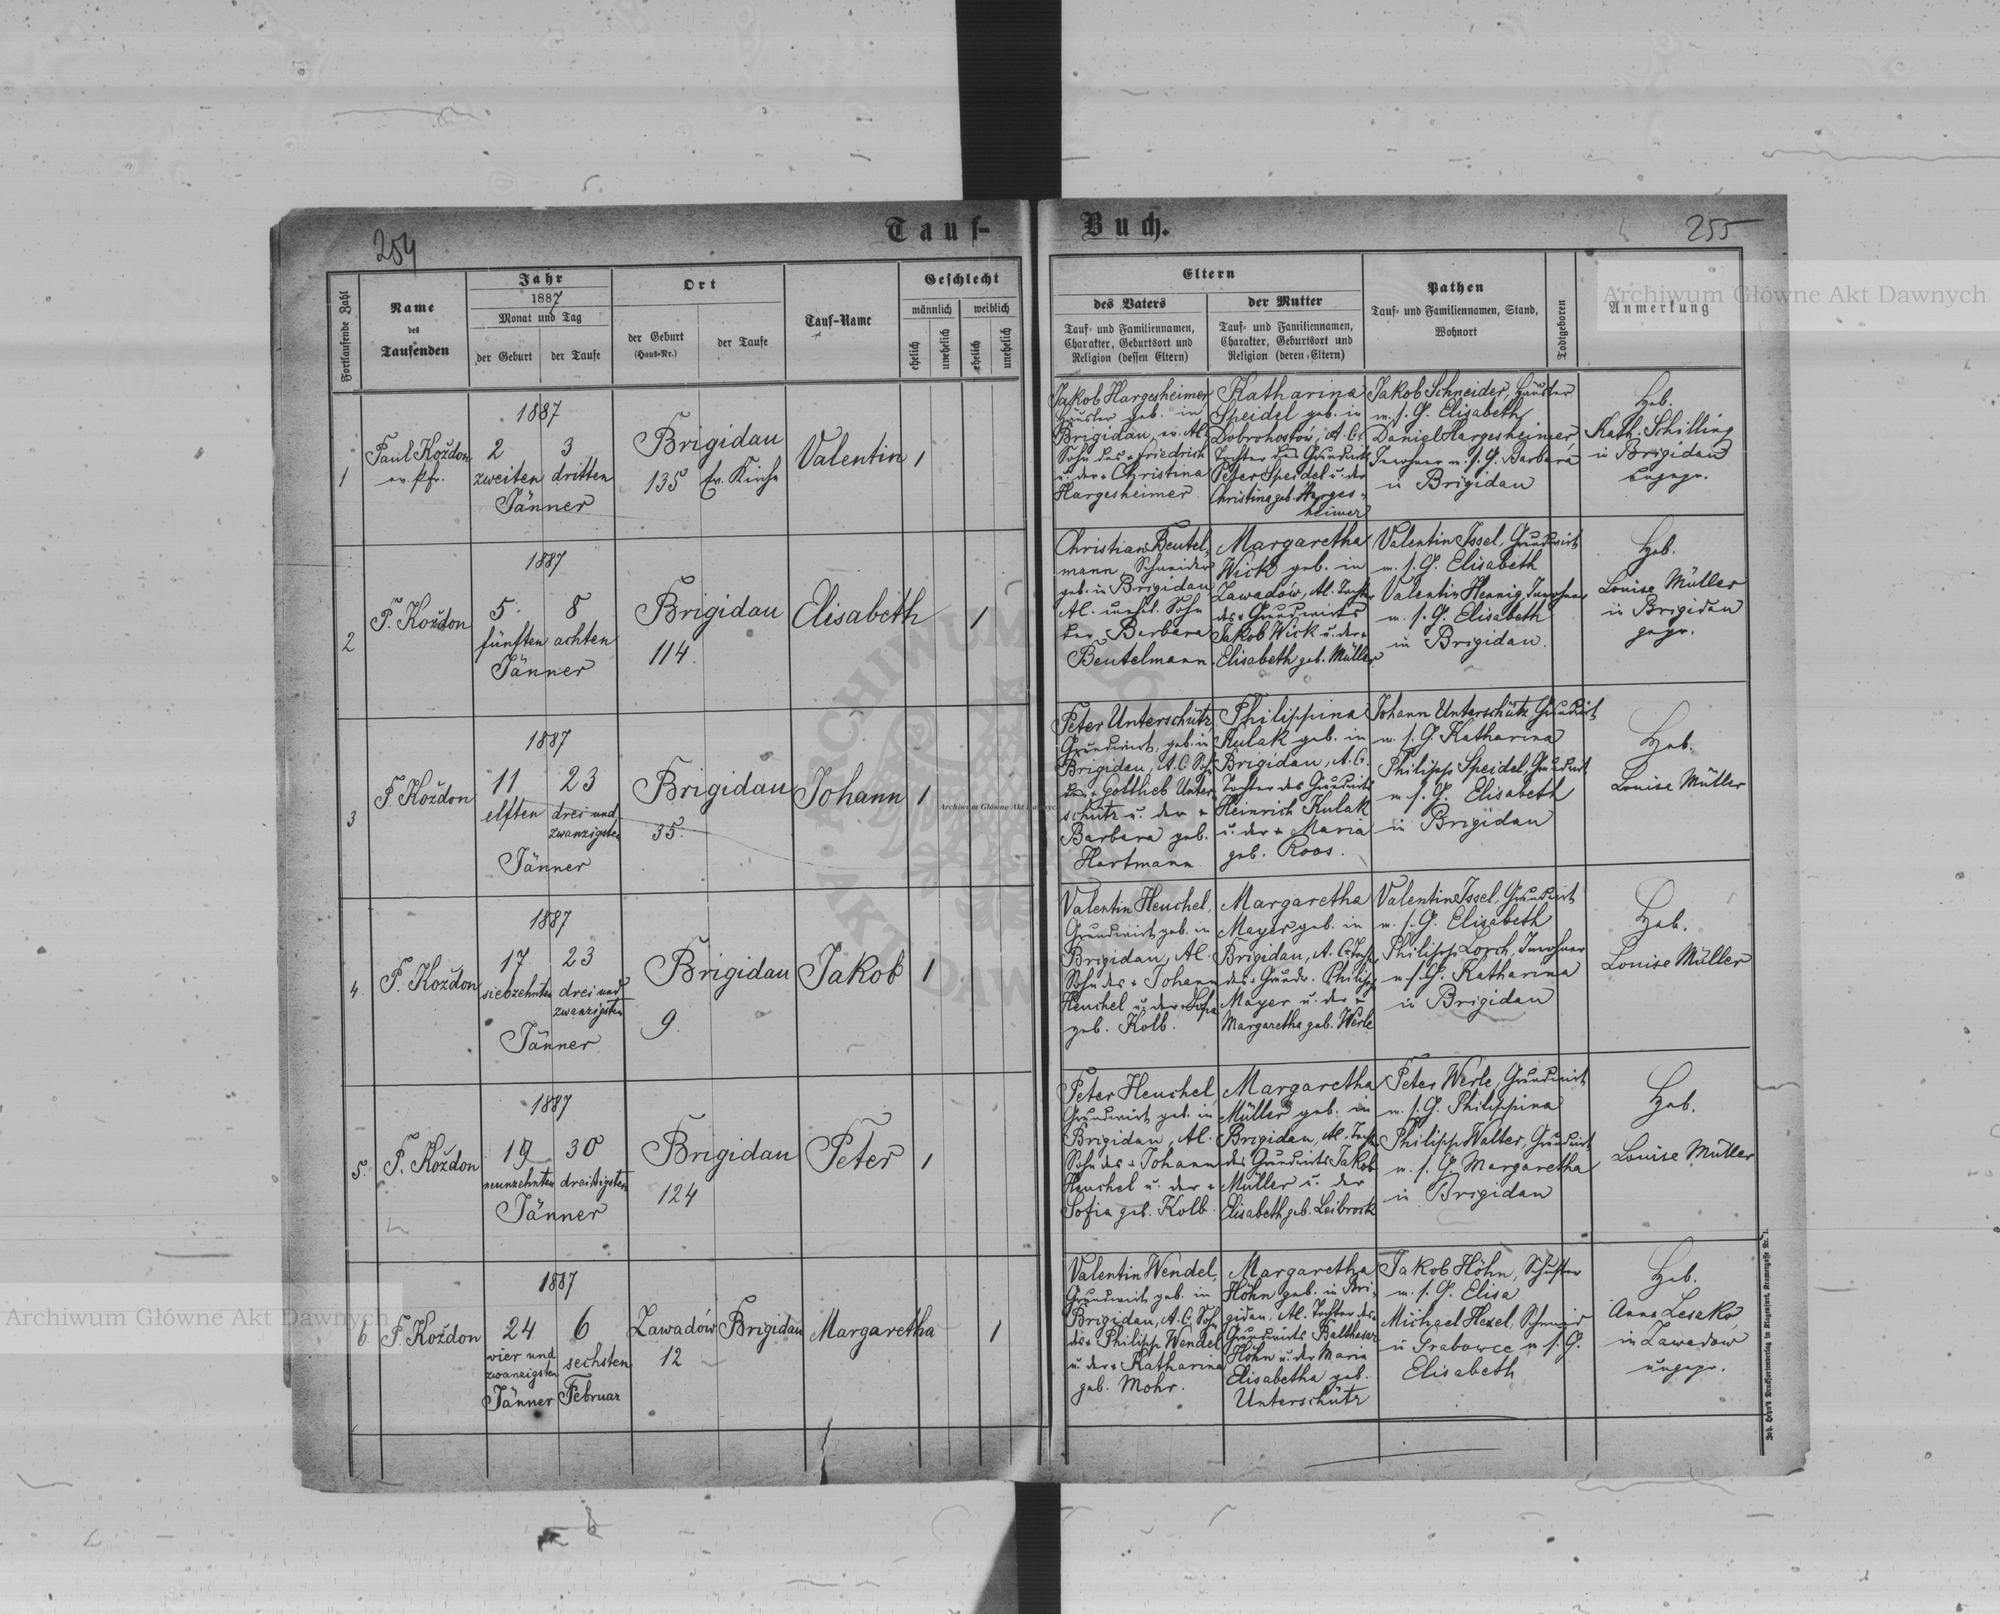 254
Tauf-
Buch.
255
Fortlaufende Zahl
Name
des
Taufenden
Jahr
1887
Monat und Tag
der Geburt
der Taufe
Ort
der Geburt
(Haus-Nr.)
der Taufe
Tauf-Name
Geschlecht
männlich
weiblich
ehelich
unehelich
ehelich
unehelich
Eltern
des Vaters
Tauf- und Familiennamen,
Charakter, Geburtsort und
Religion (dessen Eltern)
der Mutter
Tauf- und Familiennamen,
Charakter, Geburtsort und
Religion (deren Eltern)
Pathen
Tauf- und Familiennamen, Stand,
Wohnort
Todtgeboren
Anmerkung
1
Paul Koždon
ev. Pfr.
1887
2
3
zweiten
dritten
Jänner
Brigidau
135
Ev. Kirche
Valentin
1
Jakob Hargesheimer
Häusler geb. in
Brigidau, ev. A.C.
Sohn des + Friedrich
u. der + Christina
Hargesheimer.
Katharina
Speidel geb. in
Dobrohostów, A.C.
Tochter des Grundwirts
Peter Speidel u. der
Christina geb. Harges-
heimer
Jakob Schneider, Häusler
m. s. G. Elisabeth
Daniel Hargesheimer,
Inwohner m. s. G. Barbara
in Brigidau
Heb.
Kath. Schilling
in Brigidau
2
P. Koždon
1887
5
8
fünften
achten
Jänner
Brigidau
114.
Elisabeth
1
Christian Beutel-
mann, Schneider
geb. in Brigidau
A.C. unehl. Sohn
der Barbara
Beutelmann.
Margaretha
Wick geb. in
Zawadów, A.C. Tochter
des + Grundwirts
Jakob Wick u. der +
Elisabeth geb. Müller
Valentin Issel, Grundwirt
m. s. G. Elisabeth
Valentin Hennig, Inwohner
m. s. G. Elisabeth
in Brigidau.
Heb.
Louise Müller
in Brigidau
gepr.
3
P. Koždon
1887
11
23
elften
drei und
zwanzigsten
Jänner
Brigidau
35.
Johann
1
Peter Unterschütz
Grundwirt, geb. in
Brigidau, A.C. Sohn
des + Gottlieb Unter-
schütz u. der +
Barbara geb.
Hartmann.
Philippina
Kulak geb. in
Brigidau, A.C.
Tochter des Grundwirts
Heinrich Kulak
u. der + Maria
geb. Roos.
Johann Unterschütz Grundwirt
m. s. G. Katharina
Philipp Speidel, Grundwirt
m. s. G. Elisabeth
in Brigidau
Heb.
Louise Müller
4.
P. Koždon
1887
17
23
siebzehnten
drei und
zwanzigsten
Jänner
Brigidau
9.
Jakob
1
Valentin Heuchel,
Grundwirt geb. in
Brigidau, A.C.
Sohn des + Johann
Heuchel u. der + Sofia
geb. Kolb.
Margaretha
Mayer geb. in
Brigidau, A.C. Tochter
des + Grundw. Philipp
Mayer u. der +
Margaretha geb. Werle
Valentin Issel, Grundwirt
m. s. G. Elisabeth
Philipp Lorch, Inwohner
m. s. G. Katharina
in Brigidau
Heb.
Louise Müller
5.
P. Koždon
1887
19
30
neunzehnten
dreißigsten
Jänner
Brigidau
124
Peter
1
Peter Heuchel,
Grundwirt geb. in
Brigidau, A.C.
Sohn des + Johann
Heuchel u. der +
Sofia geb. Kolb.
Margaretha
Müller geb. in
Brigidau, A.C. Tochter
des Grundwirts Jakob
Müller u. der
Elisabeth geb. Leibrock
Peter Werle, Grundwirt
m. s. G. Philippina
Philipp Walter, Grundwirt
m. s. G. Margaretha
in Brigidau
Heb.
Louise Müller
6.
P. Koždon
1887
24
6
vier und
zwanzigsten
Jänner
sechsten
Februar
Zawadów
12
Brigidau
Margaretha
1
Valentin Wendel,
Grundwirt geb. in
Brigidau, A.C. Sohn
des + Philipp Wendel
u. der + Katharina
geb. Mohr.
Margaretha
Höhn geb. in Bri-
gidau, A.C. Tochter des
Grundwirts Balthasar
Höhn u. der Maria
Elisabetha geb.
Unterschütz
Jakob Höhn, Schuster
m. s. G. Elisa
Michael Hexel, Schmied
in Grabowce m. s. G.
Elisabeth
Heb.
Anna Lesako
in Zawadów
ungepr.
Archiwum Główne Akt Dawnych
Archiwum Główne Akt Dawnych
Archiwum Główne Akt Dawnych
ARCHIWUM GŁÓWNE AKT DAWNYCH